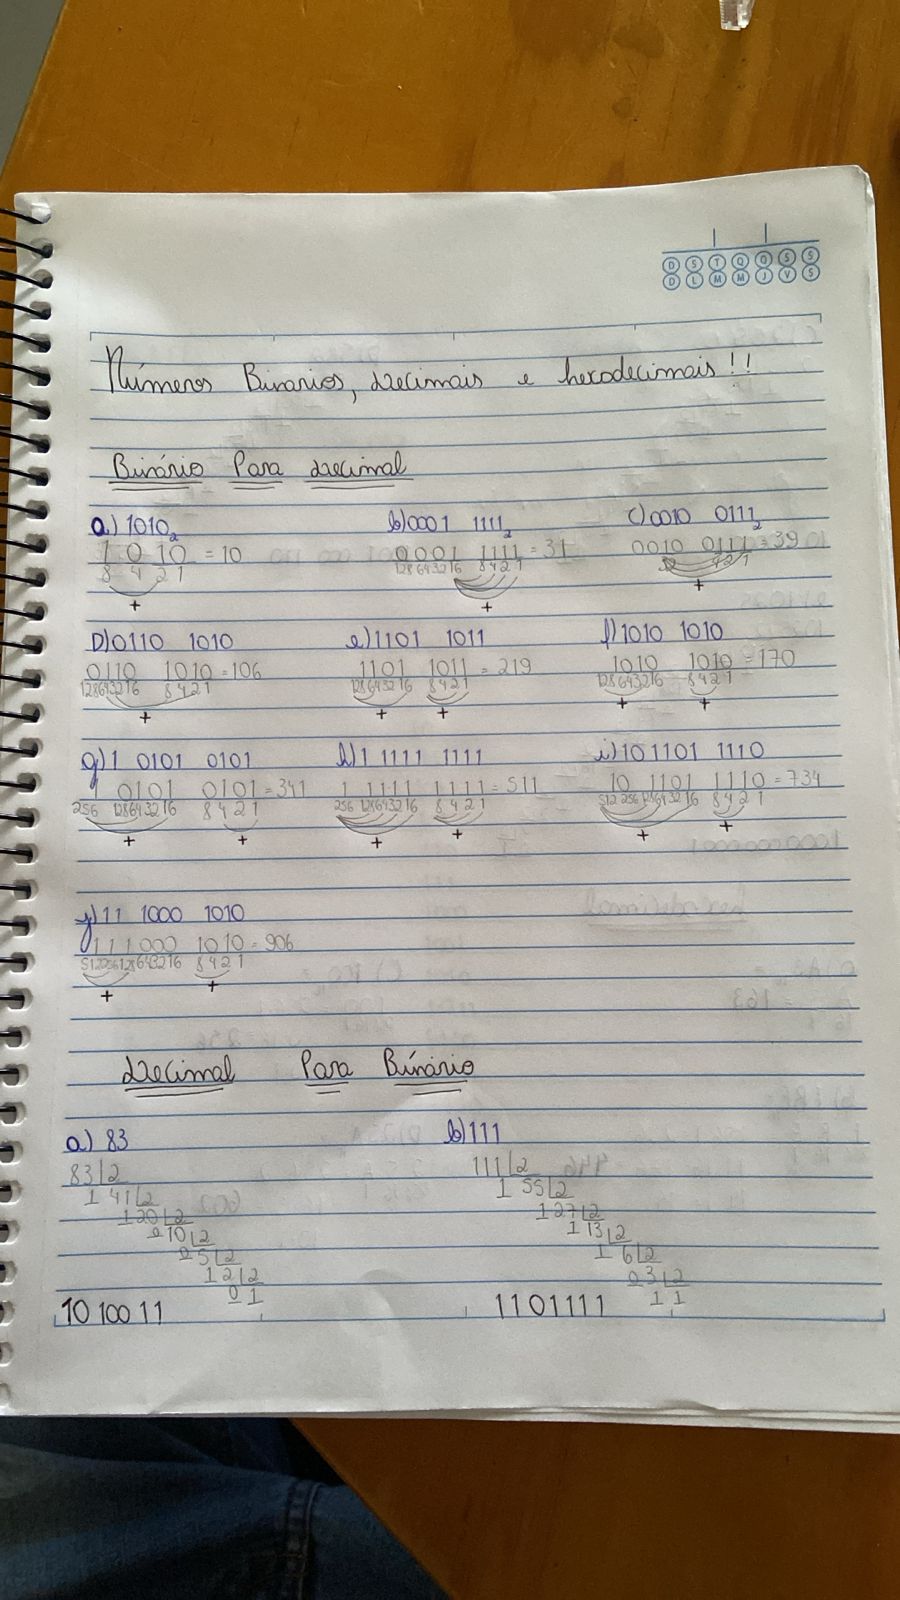 D S T Q Q S S
D L M M J V S
Números Binarios, decimais e hexodecimais!!
Binário Para decimal
a) 1010₂
1 0 10 = 10
8 4 21
+
b) 0001 1111₂
0001 1111 = 31
128643216 8421
+
c) 0010 0111₂
0010 0111 = 39
32 421
+
D) 0110 1010
0110 1010 = 106
128643216 8421
+
e) 1101 1011
1101 1011 = 219
128643216 8421
+ +
f) 1010 1010
1010 1010 = 170
128643216 8421
+ +
g) 1 0101 0101
1 0101 0101 = 341
256 128643216 8421
+ +
h) 1 1111 1111
1 1111 1111 = 511
256 128643216 8421
+ +
i) 10 1101 1110
10 1101 1110 = 734
512 256 128643216 8421
+ +
j) 11 1000 1010
11 1000 1010 = 906
512256128643216 8421
+ +
Decimal Para Binário
a) 83
83 2
1 41 2
1 20 2
0 10 2
0 5 2
1 2 2
0 1
1010011
b) 111
111 2
1 55 2
1 27 2
1 13 2
1 6 2
0 3 2
1 1
1101111